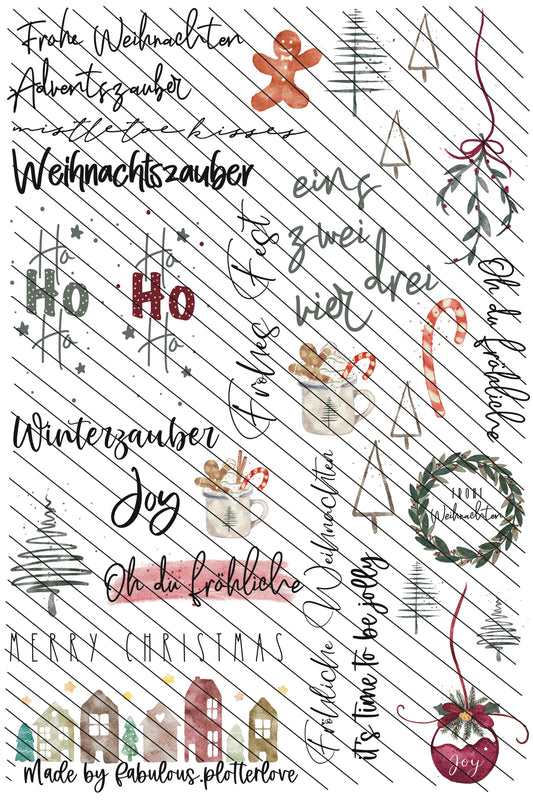 Frohe Weihnachten
Adventszauber
mistletoe kisses
Weihnachtszauber
Ho
Ho
Ho
Ho
Ho
Ho
Frohes Fest
eins
zwei
drei
vier
Oh du fröhliche
Winterzauber
Joy
FROHE
Weihnachten
Oh du fröhliche
Fröhliche Weihnachten
it's time to be jolly
MERRY CHRISTMAS
Joy
Made by fabulous.plotterlove